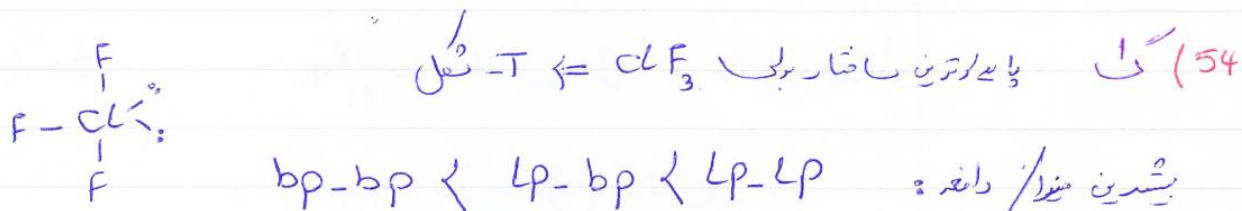 54) گ ا پایدارترین ساختار برای ClF₃ ⇐ T- شکل
F
|
F - Cl :
|
F
بیشترین میزان دافعه : bp-bp < Lp-bp < Lp-Lp